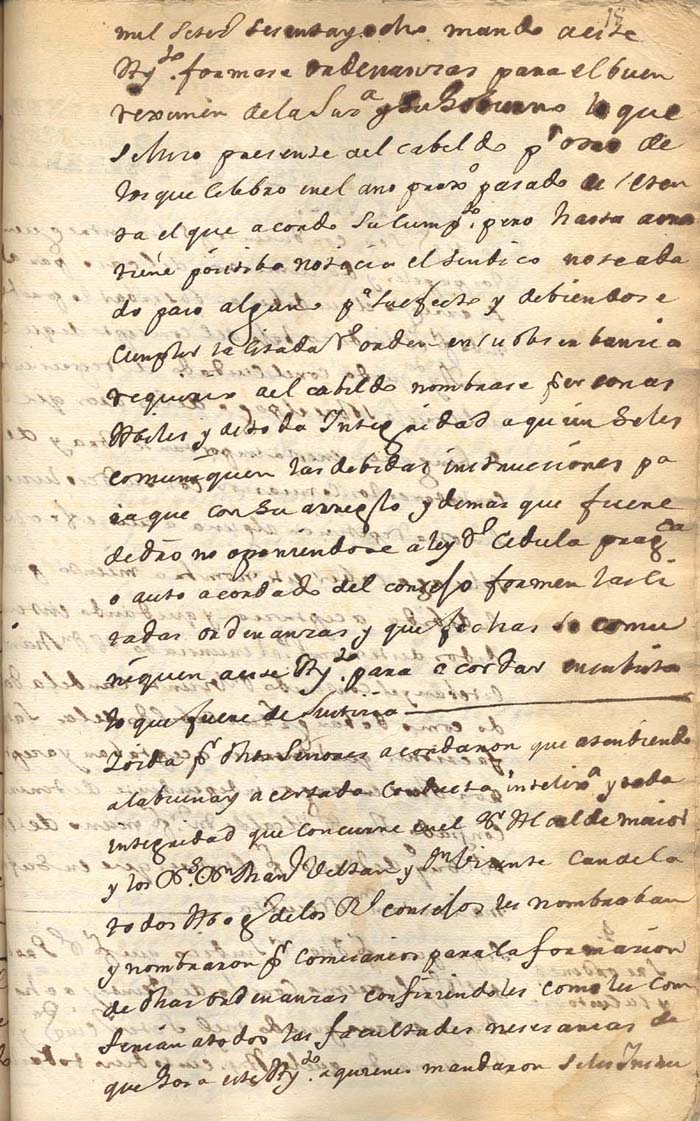 18
mil setes sesentayocho mando aeste
Ayto. formase ordenanzas para el buen
reximen delaSuxa y su Govierno lo que
sehizo presente ael cabildo pr otro de
losque Celebro enel año proxo pasado de seten
ta el que acordo Sucumpto. pero hasta aora
tiene pocitiba noticia el sindico noseada
do paso alguno pa suefecto y debiendose
Cumplir la citada Rl orden ensu obserbancia
requiere ael cabildo nombrase personas
Abiles y detoda Integridad aquien seles
comuniquen las debidas instrucciones pa
ra que con su arreglo y demas que fuere
dedro no oponiendose a ley Rl Cedula pragca
o auto acordado del consejo formen lasCi
tadas ordenanzas y que fechas se comu
niquen aeste Ayto. para acordar ensubista
lo que fuere de Justicia
Yoida pr dhos Señores acordaron que atendiendo
alabuena y acertada conducta intelixa y toda
integridad que concurre enel Sr Alcalde maior
y los Ds. Dn Beltran y Dn Visente Candela
todos Abogs delos Rs consejos les nombraban
y nombraron pr comisarios para la formacion
de dhas ordenanzas confiriendoles como les con
ferian atodos las facultades nesesarias de
que Goza este Ayto. aquienes mandaron seles